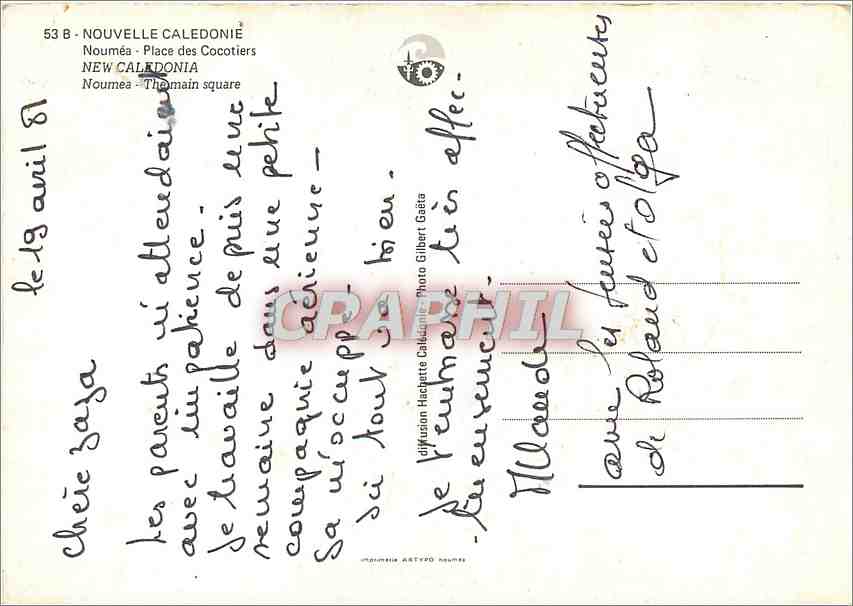 53 B - NOUVELLE CALEDONIE
Nouméa - Place des Cocotiers
NEW CALEDONIA
Noumea - The main square
le 19 avril 81
Chère Zaza
Les parents m'attendaient
avec impatience.
Je travaille depuis une
semaine dans une petite
compagnie aérienne -
Ça m'occupe.
Ici tout va bien.
Je t'embrasse très affec-
tueusement.
Maude
avec les pensées affectueuses
de Roland et Olga
diffusion Hachette Calédonie - Photo Gilbert Gaëta
imprimerie ARTYPO nouméa
CPAPHIL